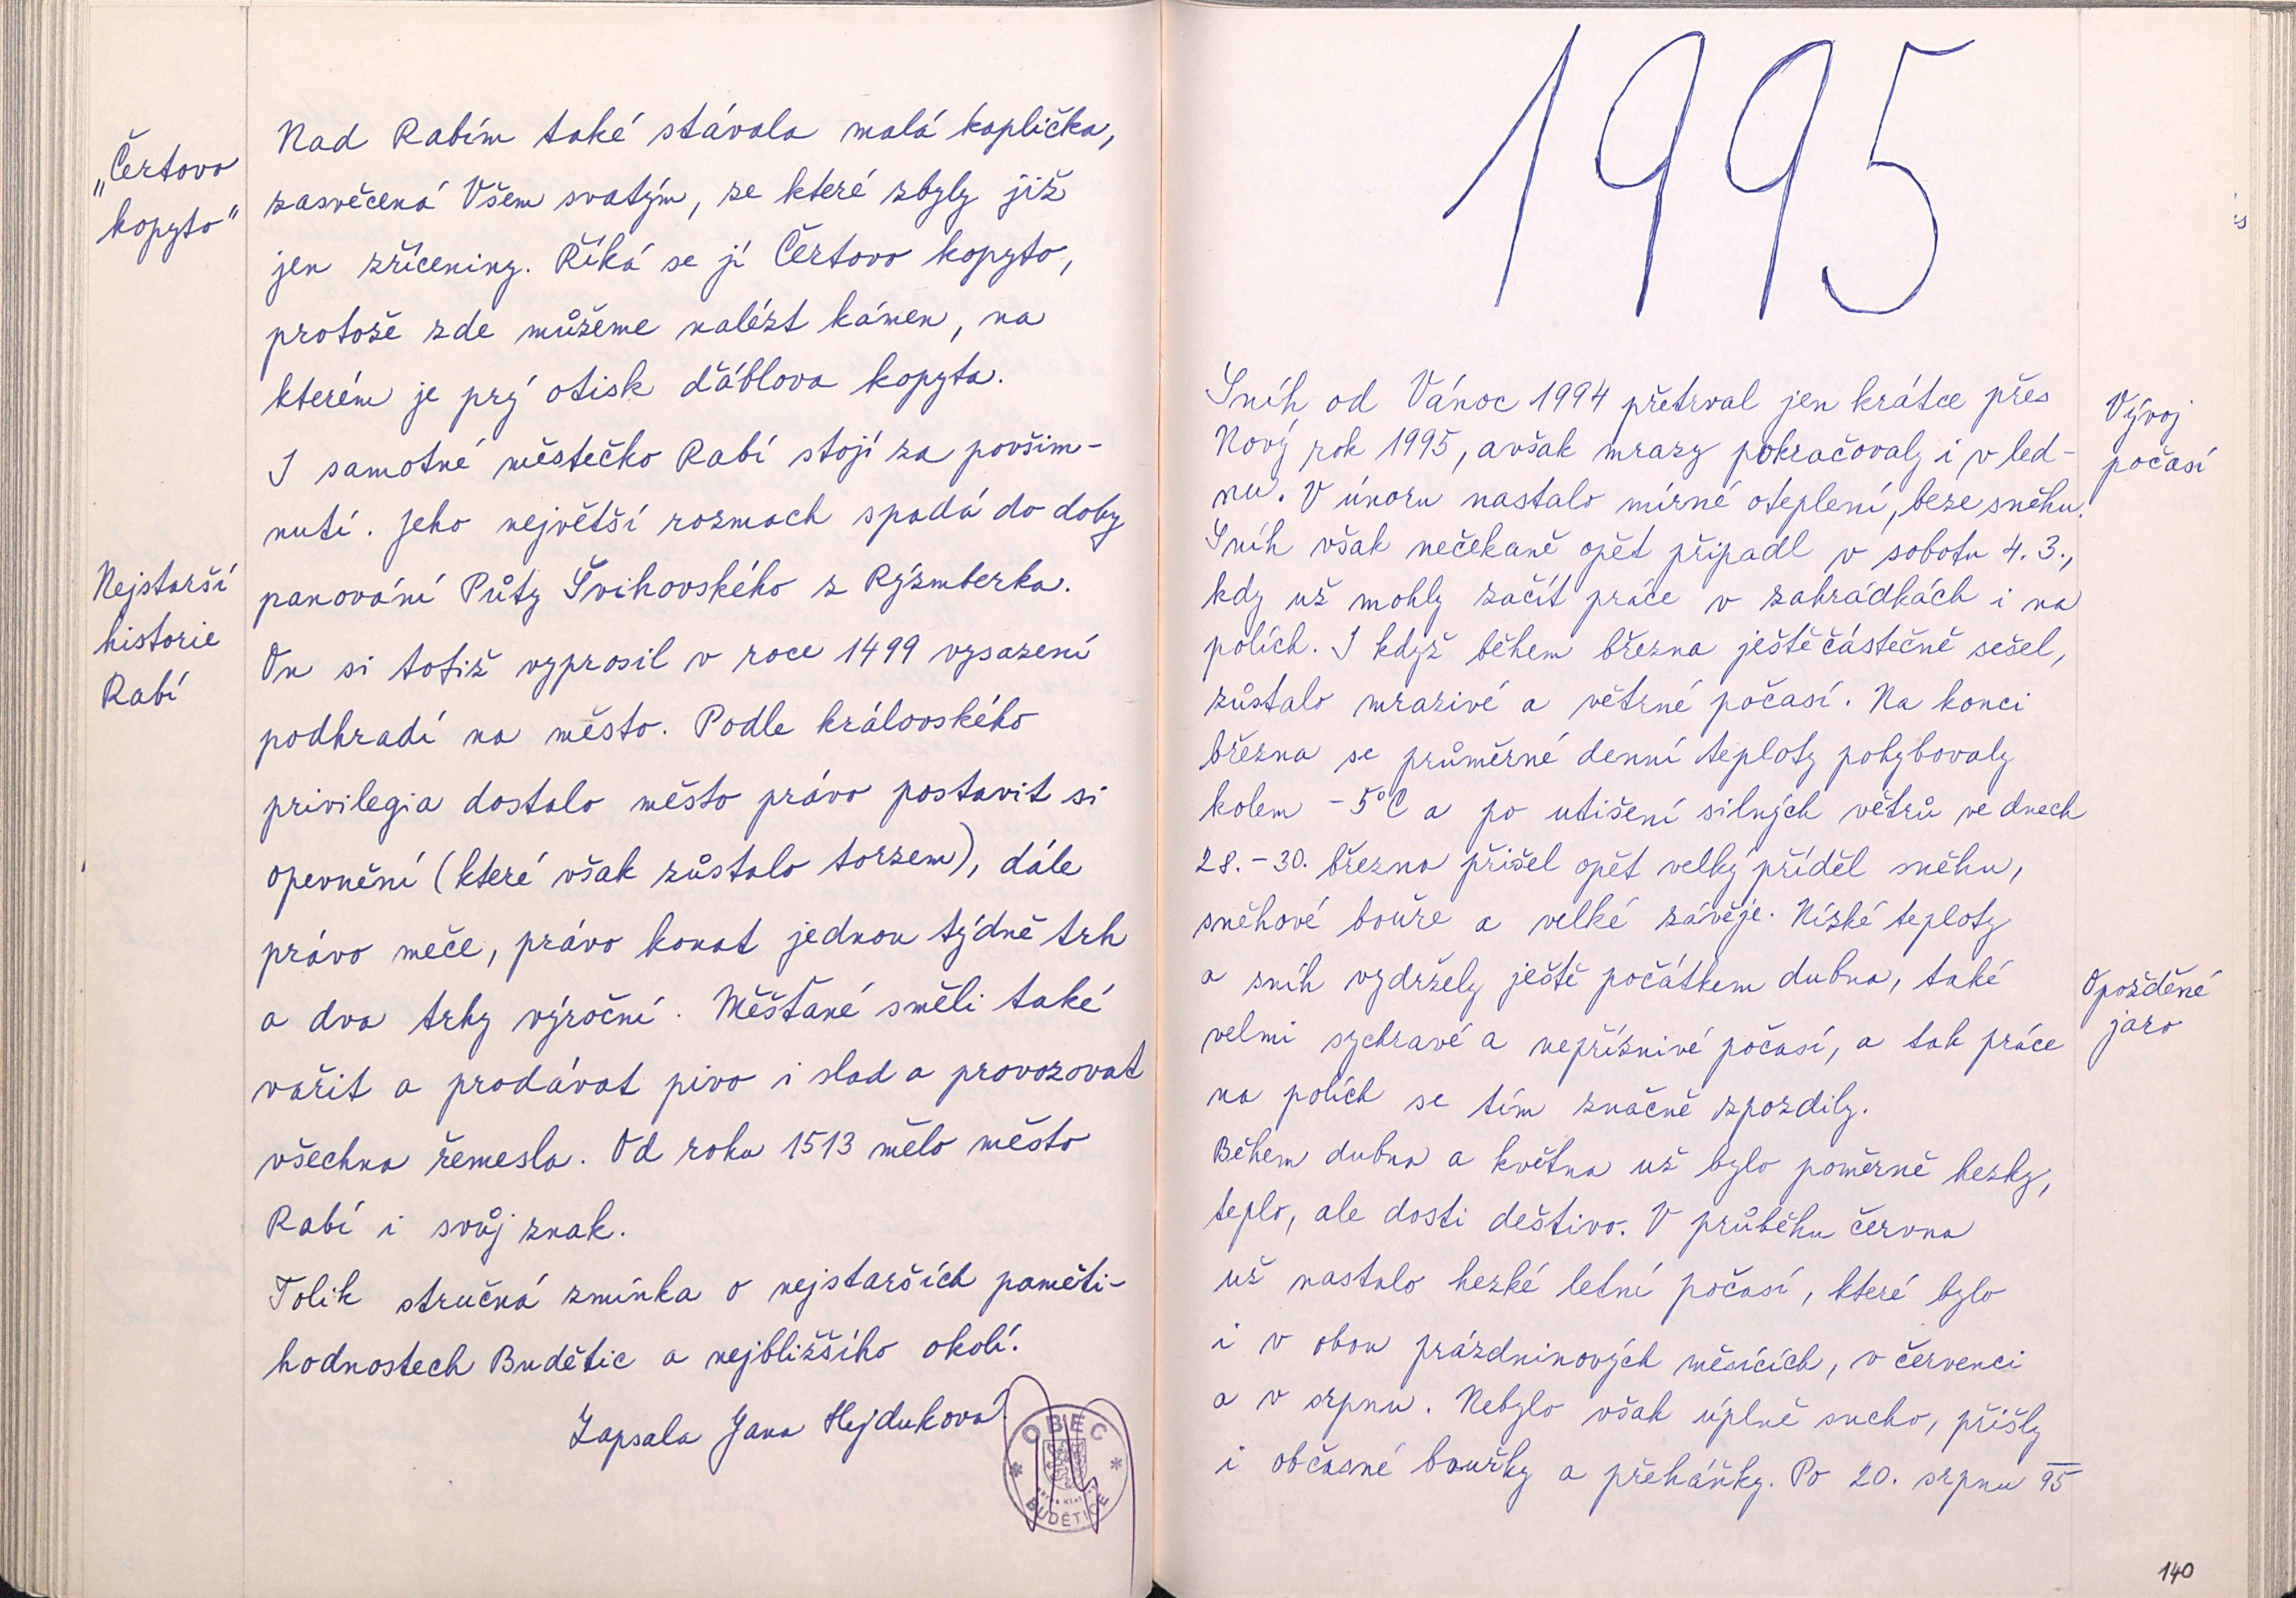 „Čertovo
kopyto"
Nad Rabím také stávala malá kaplička,
zasvěcená Všem svatým, ze které zbyly již
jen zříceniny. Říká se jí Čertovo kopyto,
protože zde můžeme nalézt kámen, na
kterém je prý otisk ďáblova kopyta.
I samotné městečko Rabí stojí za povšim-
nutí. Jeho největší rozmach spadá do doby
Nejstarší
historie
Rabí
panování Půty Švihovského z Rýzmberka.
On si totiž vyprosil v roce 1499 vysazení
podhradí na město. Podle královského
privilegia dostalo město právo postavit si
opevnění (které však zůstalo torzem), dále
právo meče, právo konat jednou týdně trh
a dva trhy výroční. Měšťané směli také
vařit a prodávat pivo i slad a provozovat
všechna řemesla. Od roku 1513 mělo město
Rabí i svůj znak.
Tolik stručná zmínka o nejstarších paměti-
hodnostech Budětic a nejbližšího okolí.
Zapsala Jana Hejduková
OBEC
BUDĚTICE
1995
Sníh od Vánoc 1994 přetrval jen krátce přes
Vývoj
počasí
Nový rok 1995, avšak mrazy pokračovaly i v led-
nu. V únoru nastalo mírné oteplení, beze sněhu.
Sníh však nečekaně opět připadl v sobotu 4. 3.,
kdy už mohly začít práce v zahrádkách i na
polích. I když během března ještě částečně sešel,
zůstalo mrazivé a větrné počasí. Na konci
března se průměrné denní teploty pohybovaly
kolem -5°C a po utišení silných větrů ve dnech
28.-30. března přišel opět velký příděl sněhu,
sněhové bouře a velké závěje. Nízké teploty
a sníh vydržely ještě počátkem dubna, také
Opožděné
jaro
velmi sychravé a nepříznivé počasí, a tak práce
na polích se tím značně zpozdily.
Během dubna a května už bylo poměrně hezky,
teplo, ale dosti deštivo. V průběhu června
už nastalo hezké letní počasí, které bylo
i v obou prázdninových měsících, v červenci
a v srpnu. Nebylo však úplně sucho, přišly
i občasné bouřky a přeháňky. Po 20. srpnu 95
140